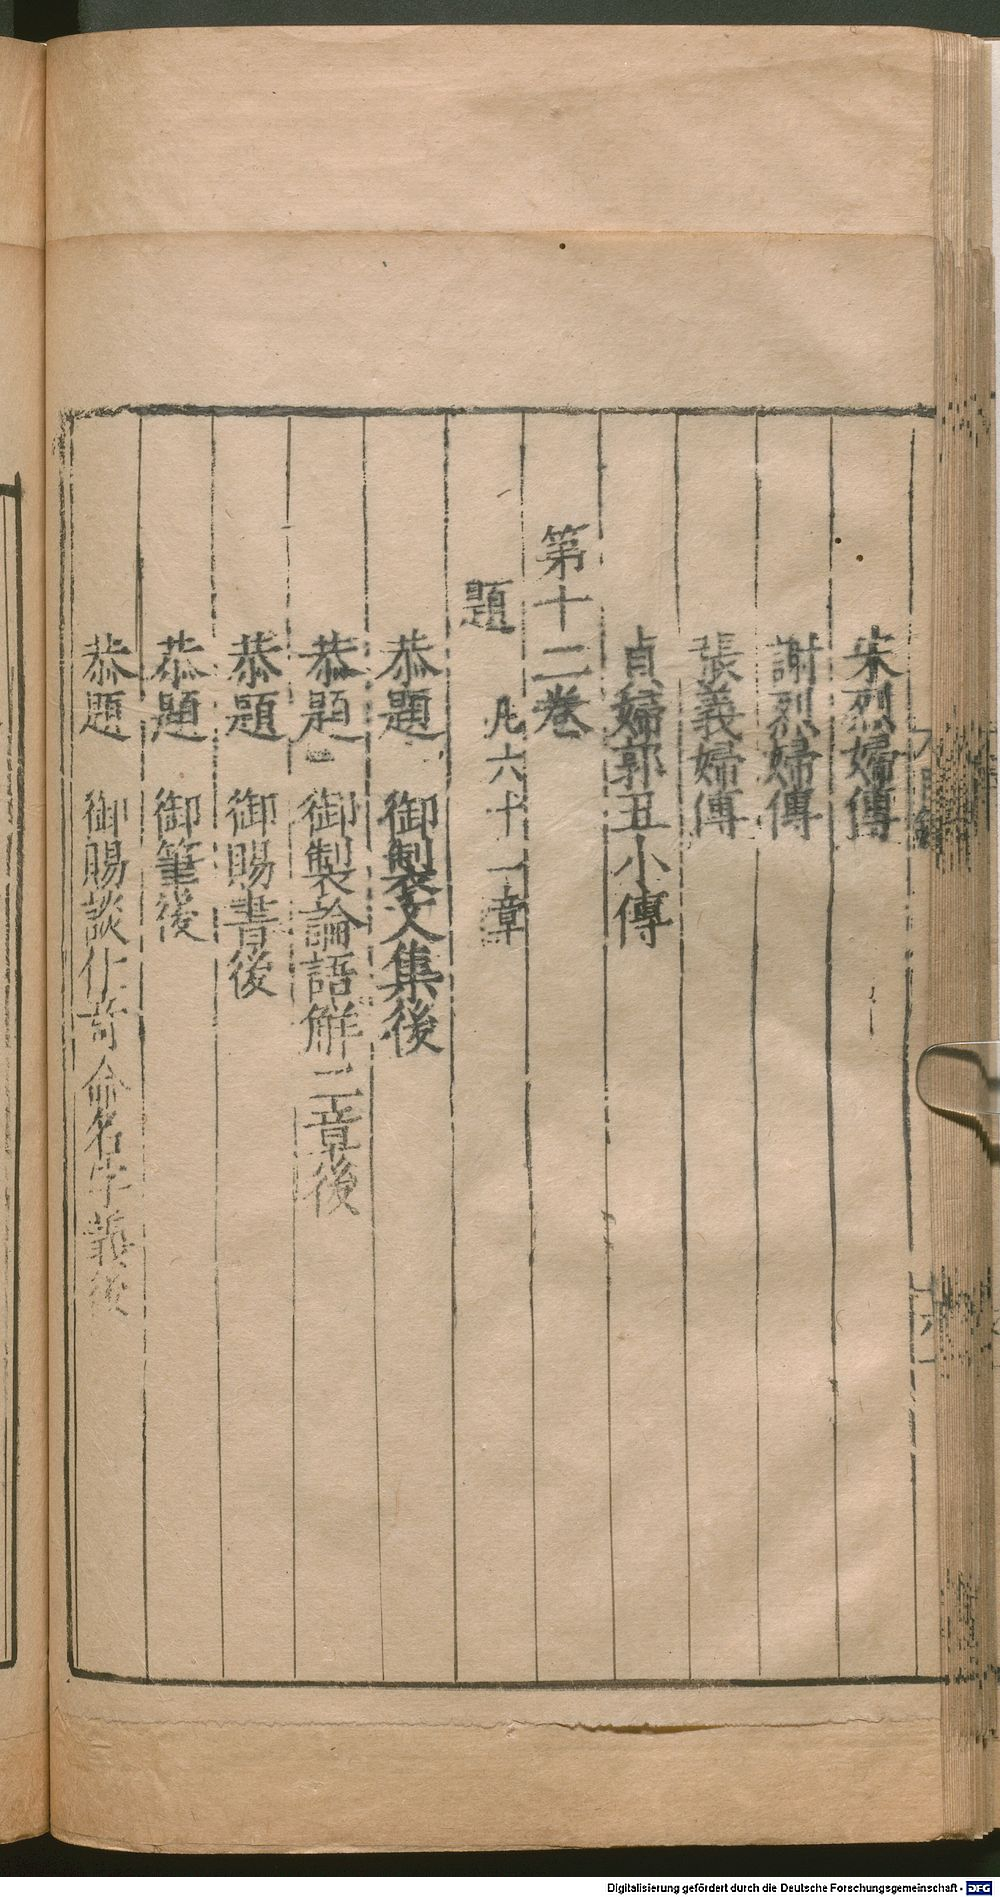 宋烈婦傳
謝烈婦傳
張義婦傳
貞婦郭丑小傳
第十二卷
題
凡六十一章
恭題 御製文集後
恭題 御製論語解二章後
恭題 御賜書後
恭題 御筆後
恭題 御賜談化 命名字義後
Digitalisierung gefördert durch die Deutsche Forschungsgemeinschaft - DFG